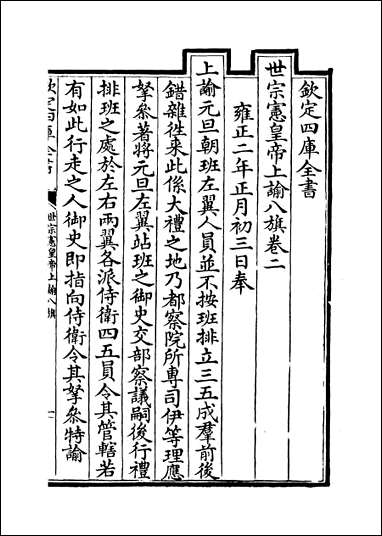 欽定四庫全書
世宗憲皇帝上諭八旗卷二
雍正二年正月初三日奉
上諭元旦朝班左翼人員並不按班排立三五成羣前後
錯雜徃來此係大禮之地乃都察院所專司伊等理應
拏叅著將元旦左翼站班之御史交部察議嗣後行禮
排班之處於左右兩翼各派侍衛四五員令其管轄若
有如此行走之人御史即指向侍衛令其拏叅特諭
欽定四庫全書
世宗憲皇帝上諭八旗
一